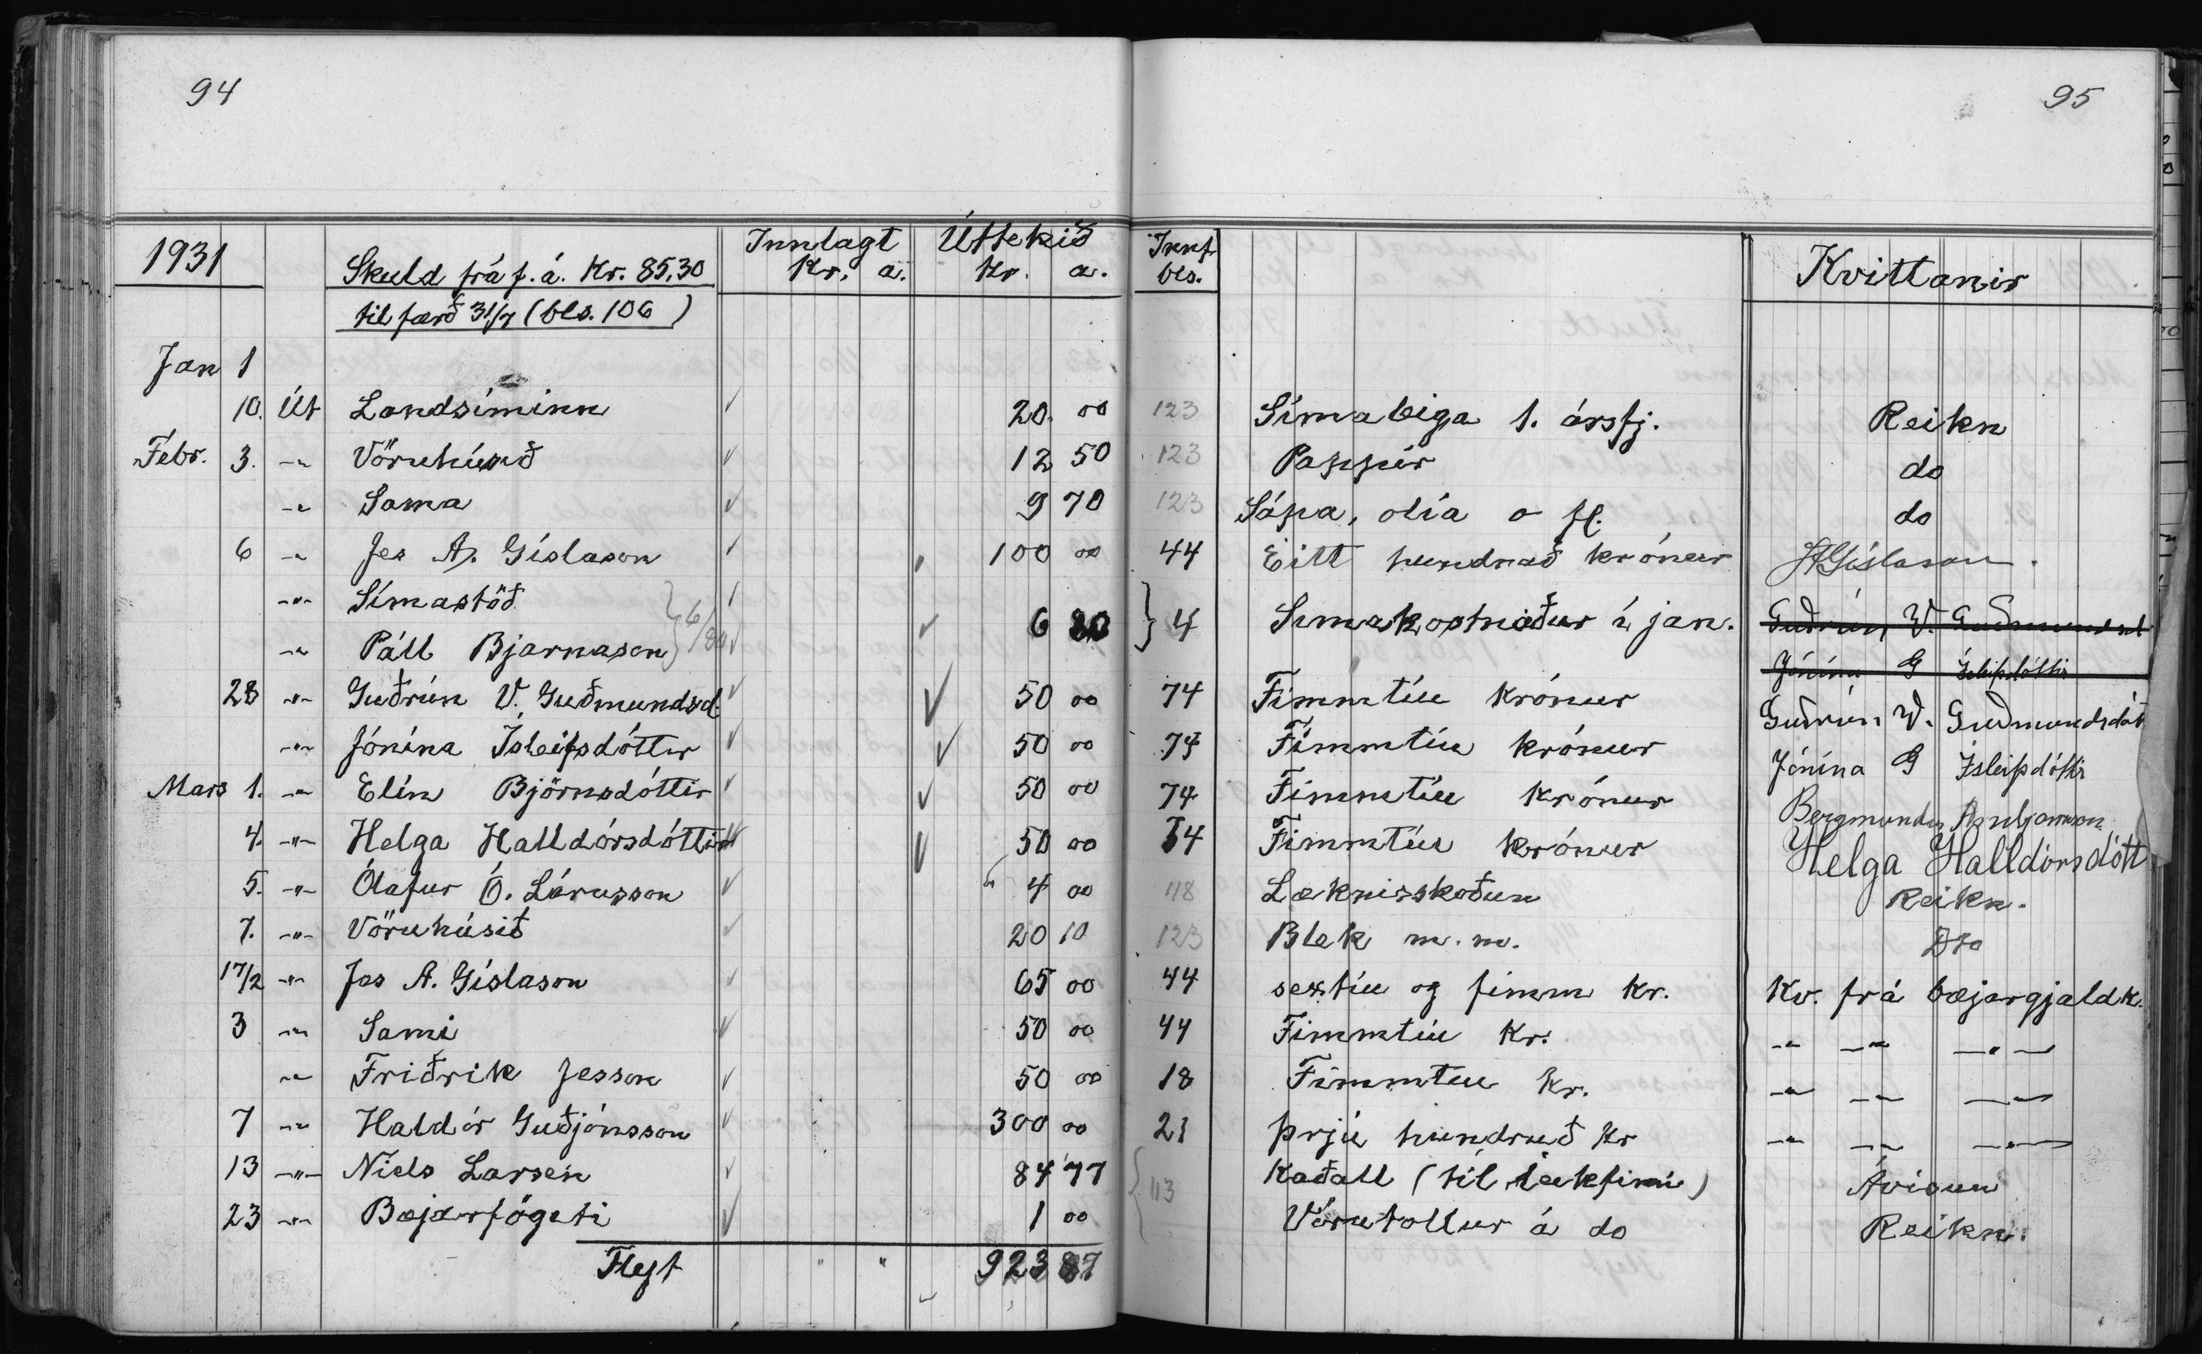 94
95
1931 Skuld frá f. á. Kr. 85,30 Innlagt Kr. a. Úttekið Kr. a. Innf. bls. Kvittanir
tilfærð 31/7 (bls. 106)
Jan 1
10. Út Landsíminn 20 00 123 Símaleiga 1. ársfj. Reikn
Febr. 3. -"- Vöruhúsið 12 50 123 Pappír do
-"- Sama 9 70 123 Sápa, olía o fl. do
6 -"- Jes A. Gíslason 100 00 44 Eitt hundrað krónur JAGíslason.
-"- Símastöð
-"- Páll Bjarnason 6 80 4 Símakostnaður í jan. Guðrún V. Guðmundsd
Jónína G Ísleifsdóttir
28 -"- Guðrún V. Guðmundsd. 50 00 74 Fimmtíu krónur Guðrún V. Guðmundsdót
-"- Jónína Ísleifsdóttir 50 00 74 Fimmtíu krónur Jónína G Ísleifsdóttir
Mars 1. -"- Elín Björnsdóttir 50 00 74 Fimmtíu krónur Bergmundur Arnbjörnsson
4. -"- Helga Halldórsdóttir 50 00 74 Fimmtíu krónur Helga Halldórsdótt
5. -"- Ólafur Ó. Lárusson 4 00 118 Læknisskoðun Reikn.
7. -"- Vöruhúsið 20 10 123 Blek m. m. Dto
17/2 -"- Jes A. Gíslason 65 00 44 sextíu og fimm kr. Kv. frá bæjargjaldk.
3 -"- Sami 50 00 44 Fimmtíu kr. -"- -"- -"-
-"- Friðrik Jesson 50 00 18 Fimmtíu kr. -"- -"- -"-
7 -"- Haldór Guðjónsson 300 00 21 þrjú hundruð kr -"- -"- -"-
13 -"- Niels Larsen 84 77 113 Kaðall (til leikfimi) Ávísun
23 -"- Bæjarfógeti 1 00 Vörutollur á do Reikn.
Flyt " " 923 87